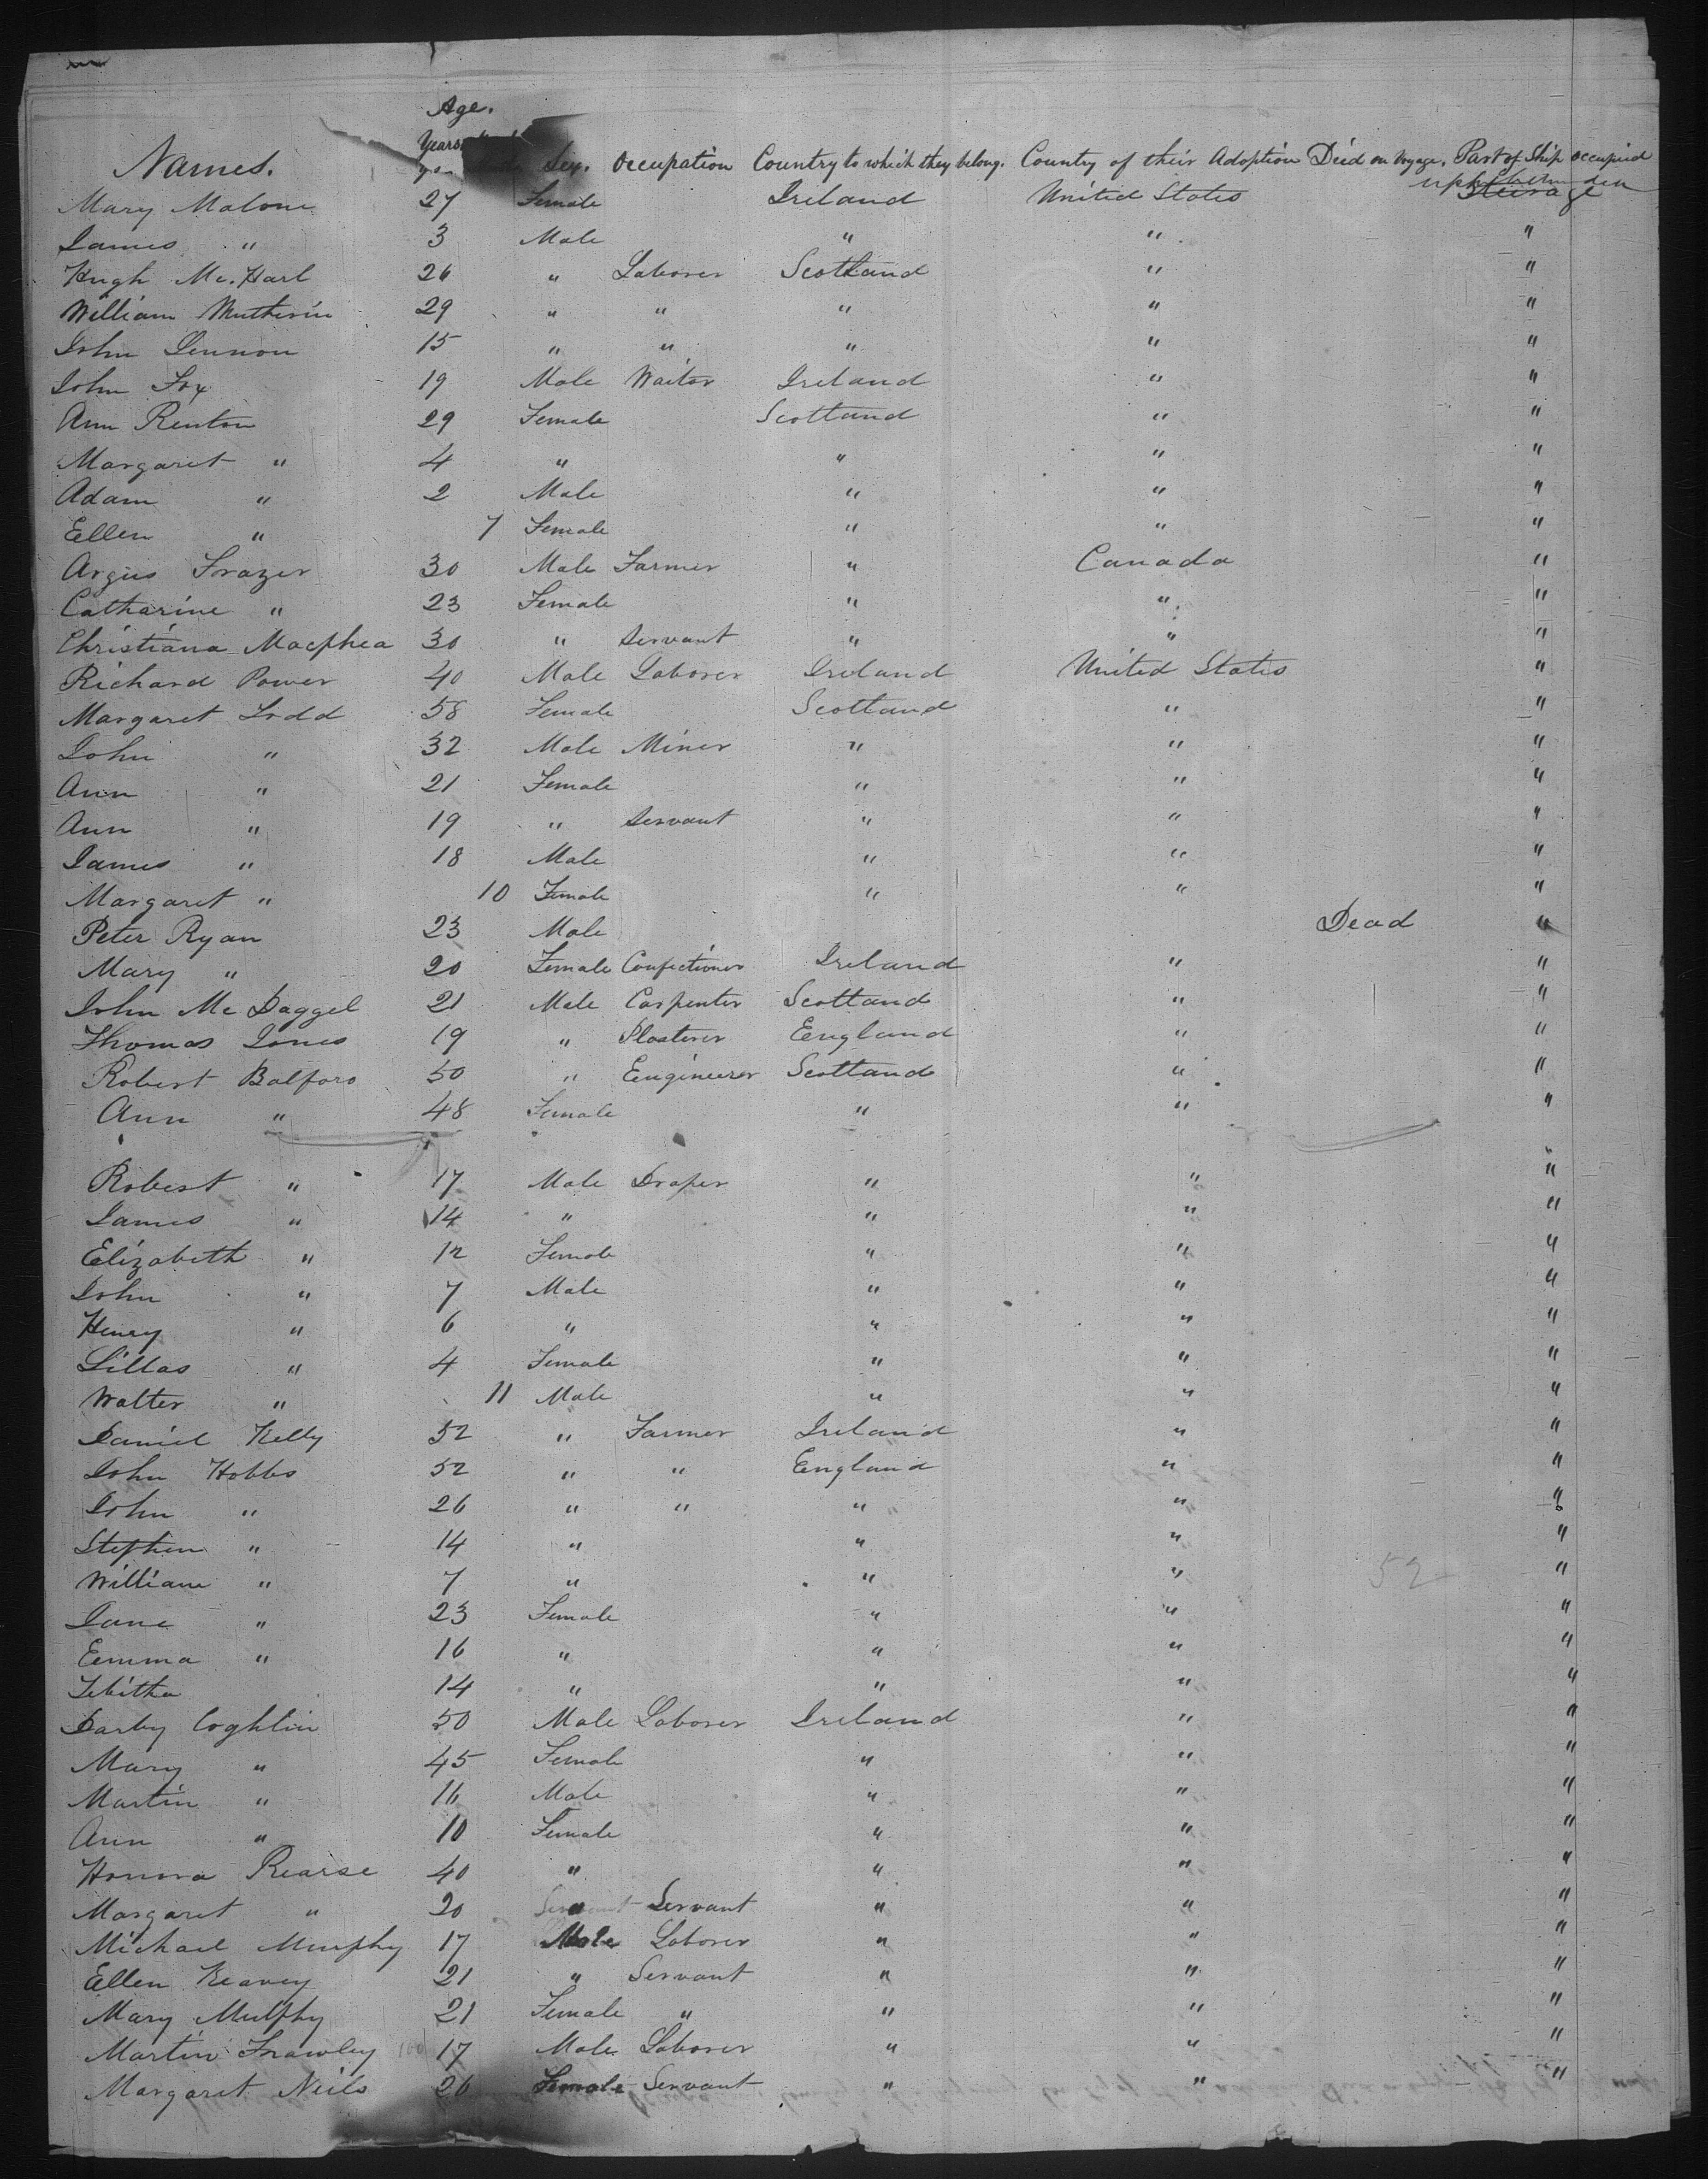 Age.
Years
Names. Sex. Occupation Country to which they belong. Country of their Adoption Died on Voyage. Part of Ship occupied
Mary Malone 27 Female Ireland United States Steerage
James " 3 Male " " "
Hugh Mc. Harl 26 " Laborer Scotland " "
William 29 " " " " "
John Lennon 15 " " " " "
John Fox 19 Male Waiter Ireland " "
Ann Renton 29 Female Scotland " "
Margaret " 4 " " " "
Adam " 2 Male " " "
Ellen " 7 Female " " "
Argus Frazer 30 Male Farmer " Canada "
Catharine " 23 Female " " "
Christiana Macphea 30 " Servant " " "
Richard Power 40 Male Laborer Ireland United States "
Margaret Todd 58 Female Scotland " "
John " 32 Male Miner " " "
Ann " 21 Female " " "
Ann " 19 " Servant " " "
James " 18 Male " " "
Margaret " 10 Female " " "
Peter Ryan 23 Male Dead "
Mary " 20 Female Confectioner Ireland " "
John Mc Daggel 21 Male Carpenter Scotland " "
Thomas Jones 19 " Plasterer England " "
Robert Balforo 50 " Engineerer Scotland " "
Ann " 48 Female " " "
Robert " 17 Male Draper " " "
James " 14 " " " "
Elizabeth " 12 Female " " "
John " 7 Male " " "
Henry " 6 " " " "
Lillas " 4 Female " " "
Walter " 11 Male " " "
Daniel Kelly 52 " Farmer Ireland " "
John Hobbs 52 " " England " "
John " 26 " " " " "
Stephen " 14 " " " "
William " 7 " " " 52 "
Jane " 23 Female " " "
Emma " 16 " " " "
Tebitha 14 " " " "
Darby Coghlin 50 Male Laborer Ireland " "
Mary " 45 Female " " "
Martin " 16 Male " " "
Ann " 10 Female " " "
Honora Rearse 40 " " " "
Margaret " 20 Servant Servant " " "
Michael Murphy 17 Male Laborer " " "
Ellen Keavey 21 " Servant " " "
Mary Mulphy 21 Female " " " "
Martin Frawley 17 Male Laborer " " "
Margaret Neils 26 Female Servant " " "